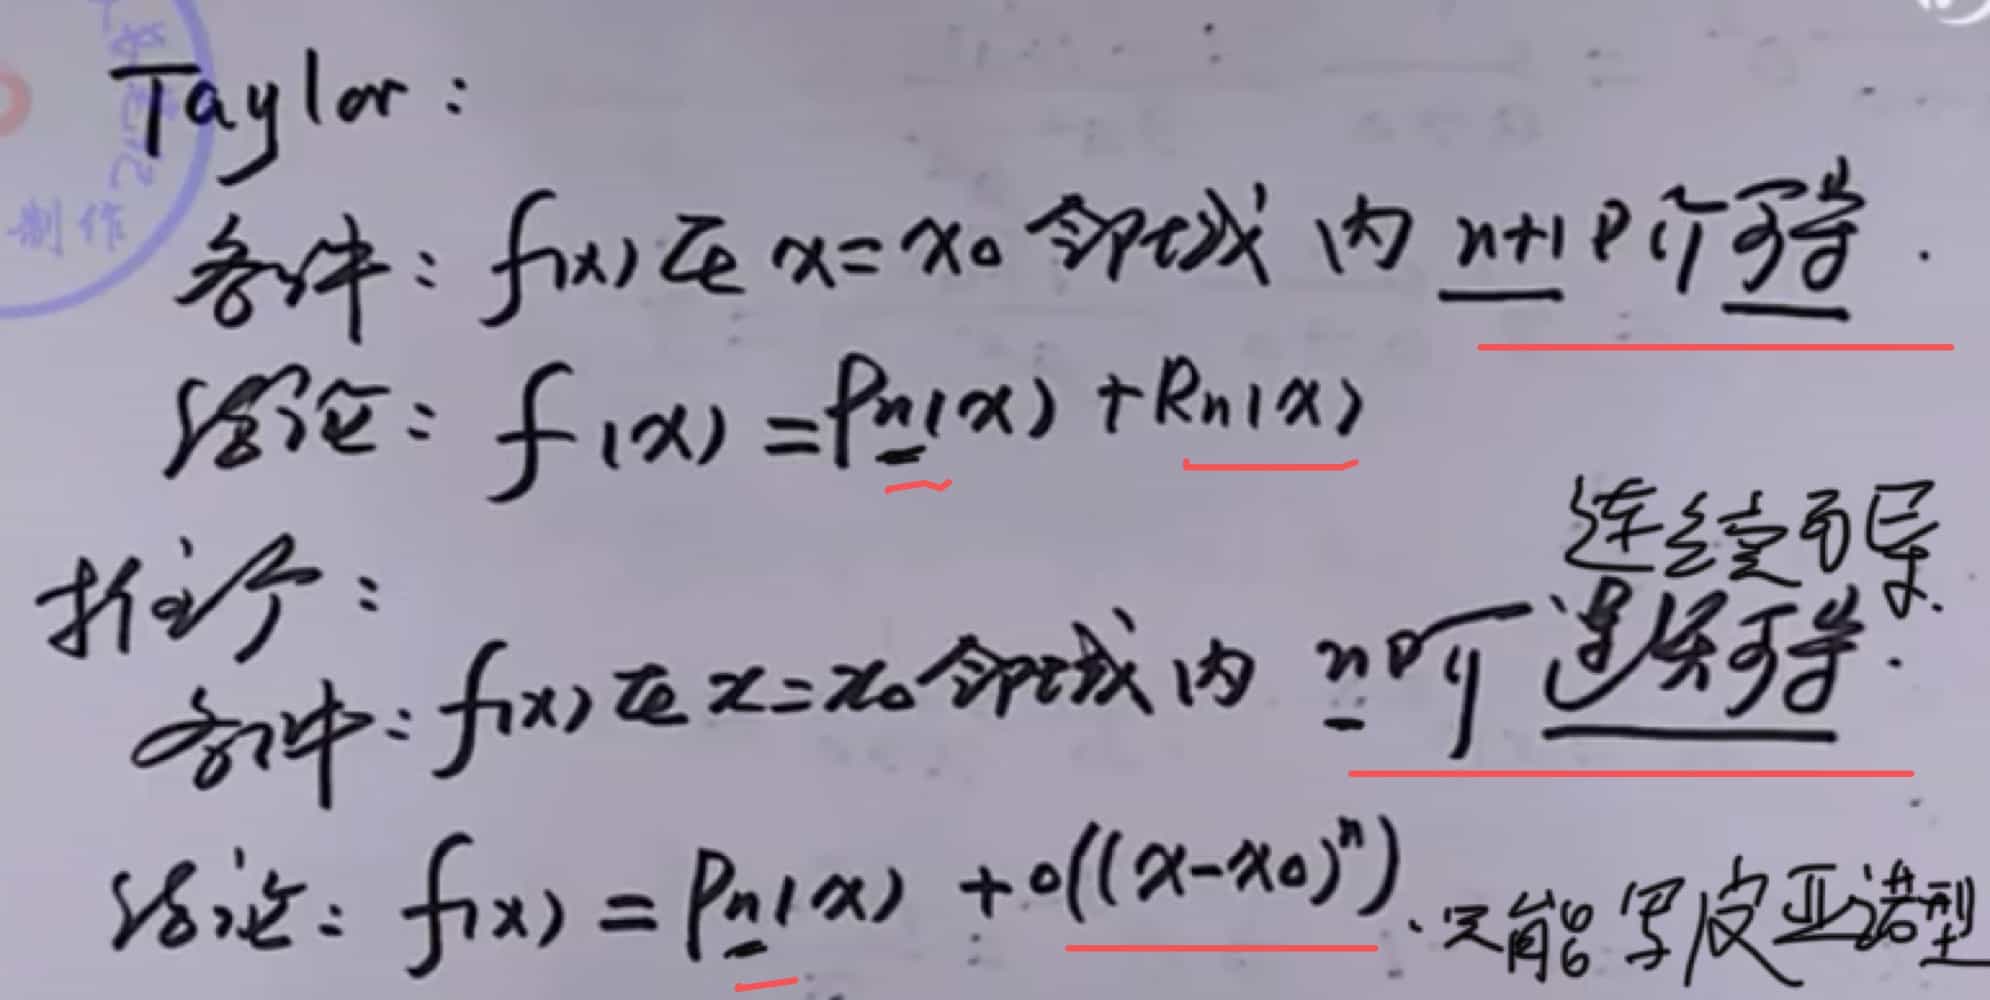 Taylor：
制作
条件：f(x)在x=x₀邻域内n+1阶可导．
结论：f(x)=Pn(x)+Rn(x)
连续可导．
推论：
条件：f(x)在x=x₀邻域内n阶连续可导．
结论：f(x)=Pn(x)+o((x-x₀)ⁿ)．只能写皮亚诺型